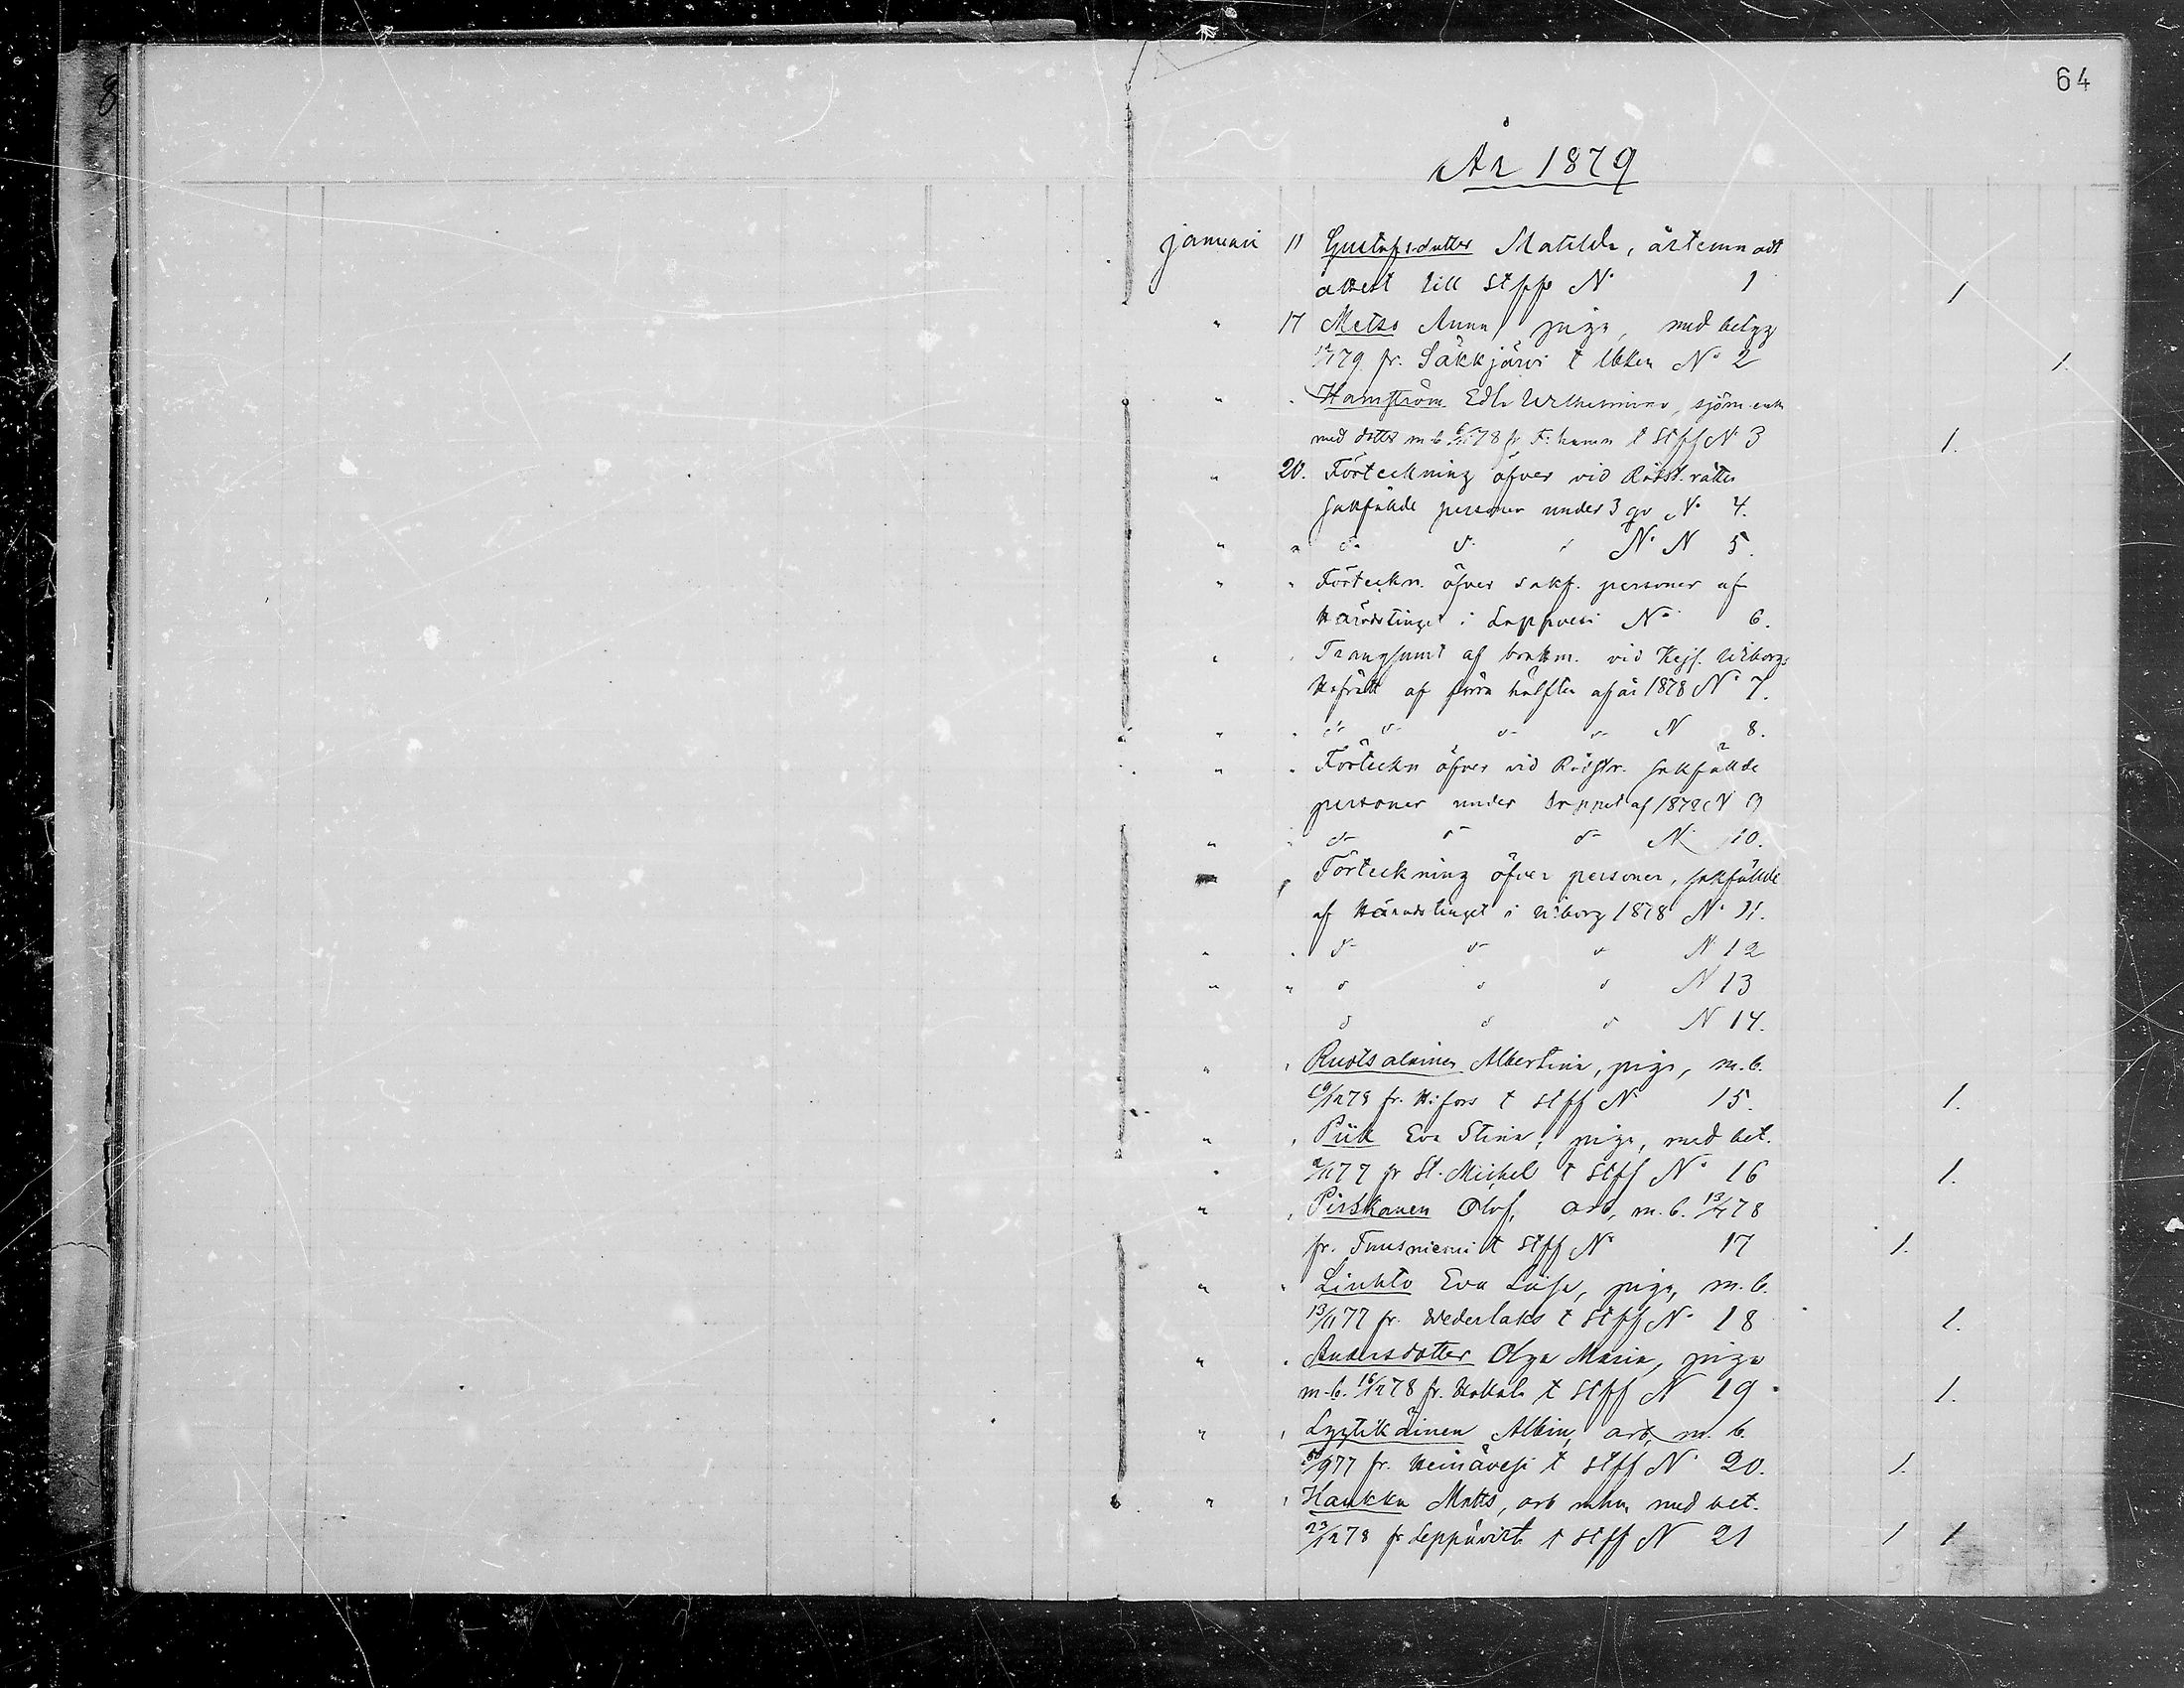 64
8
År 1879
januari 11 Gustafsdotter Matilda,
attest till stff No 1 1
" 17 Metso Anna, piga, med betyg
79 fr. Säkkjärvi t Ukken No 2 1.
" " Hamström Edla Wilhelmina, sjöm. enk
med dotter m. b. 78 fr F:hamn t stff No 3 1.
" 20. Förteckning öfver vid Rådst. rätten
sakfällde personer under 3 qv No 4.
" " do do do No N 5.
" " Förteckn. öfver sakf. personer af
Häradstinget i Lappvesi No 6.
" " Transsumt af brottm. vid Kejs. Wiborgs
Hofrätt af förra hälften af år 1878 No 7.
" " do do do do N 8.
" " Förteckn öfver vid Rådstr. sakfällde
personer under loppet af 1878 N 9
" " do do do N 10.
" Förteckning öfver personer, sakfällde
af Häradstinget i Wiborg 1878 No 11.
" " do do do N 12
" " do do do N 13
do do do N 14.
" " Ruotsalainen Albertina, piga, m. b.
/12 78 fr. H:fors t stff N 15. 1.
" " Piik Eva Stina, piga, med bet.
/11 77 fr St. Michel t stff No 16 1.
" " Pirskanen Olof, arb, m. b. 13/ 78
fr. Tuusniemi t stff No 17 1.
" " Liukko Eva Lisa, piga, m. b.
13/11 77 fr. Wederlaks t stff No 18 1.
" " Andersdotter Olga Maria, piga
m. b. 16/12 78 fr. Hokals t stff N 19. 1.
" " Lyytikäinen Albin, arb, m. b.
/9 77 fr. Heinävesi t stff No 20. 1.
" " Haukka Matts, arb m hu, med bet.
23/12 78 fr Leppävirta t stff N 21 1 1